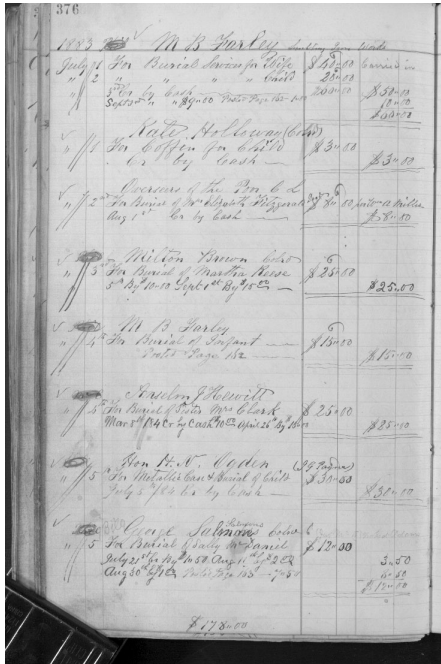 376
1883 M B Farley
July 1 For Burial Services for Wife $40.00 Carried in
" 2 " " " " Child 20.00
5th Cr by Cash $50.00
Sept " " $9.00 Posted Page
$60.00
Kate Holloway (Cold)
" 1 For Coffin for Child $3.00
Cr by Cash $3.00
Overseers of the Poor C L
" 2 For Burial of Mrs Elizabeth Fitzgerald $8.00
Aug 1st Cr by Cash $8.00
Milton Brown Cold
" 3 For Burial of Martha Reese $25.00
5th By $10.00 Sept 1st By $15.00 $25.00
M B Farley
" 4 For Burial of Infant $15.00
Posted Page 152 $15.00
Anselm J Hewitt
" 4 For Burial of Sister Mrs Clark $25.00
Mar 5th 1884 Cr by Cash 10.00 April 26th By $15.00 $25.00
Hon H. N. Ogden
" 5 For Metallic Case & Burial of Child $30.00
July 5 /84 Cr by Cash $30.00
George Salmons Cold
" 5 For Burial of Sally McDaniel $12.00
July 21st Cr By $1.50 Aug 3.50
Aug 30th Posted Page
$12.00
$178.00